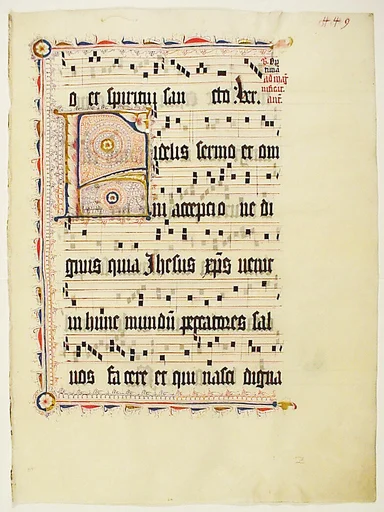 449
o et spiritui san cto. ℣er.
ad mag
nificat.
ant.
Fidelis sermo et om
ni acceptio ne di
gnus quia Jhesus xp̄s uenit
in hunc mundū peccatores sal
uos facere et qui nasci digna